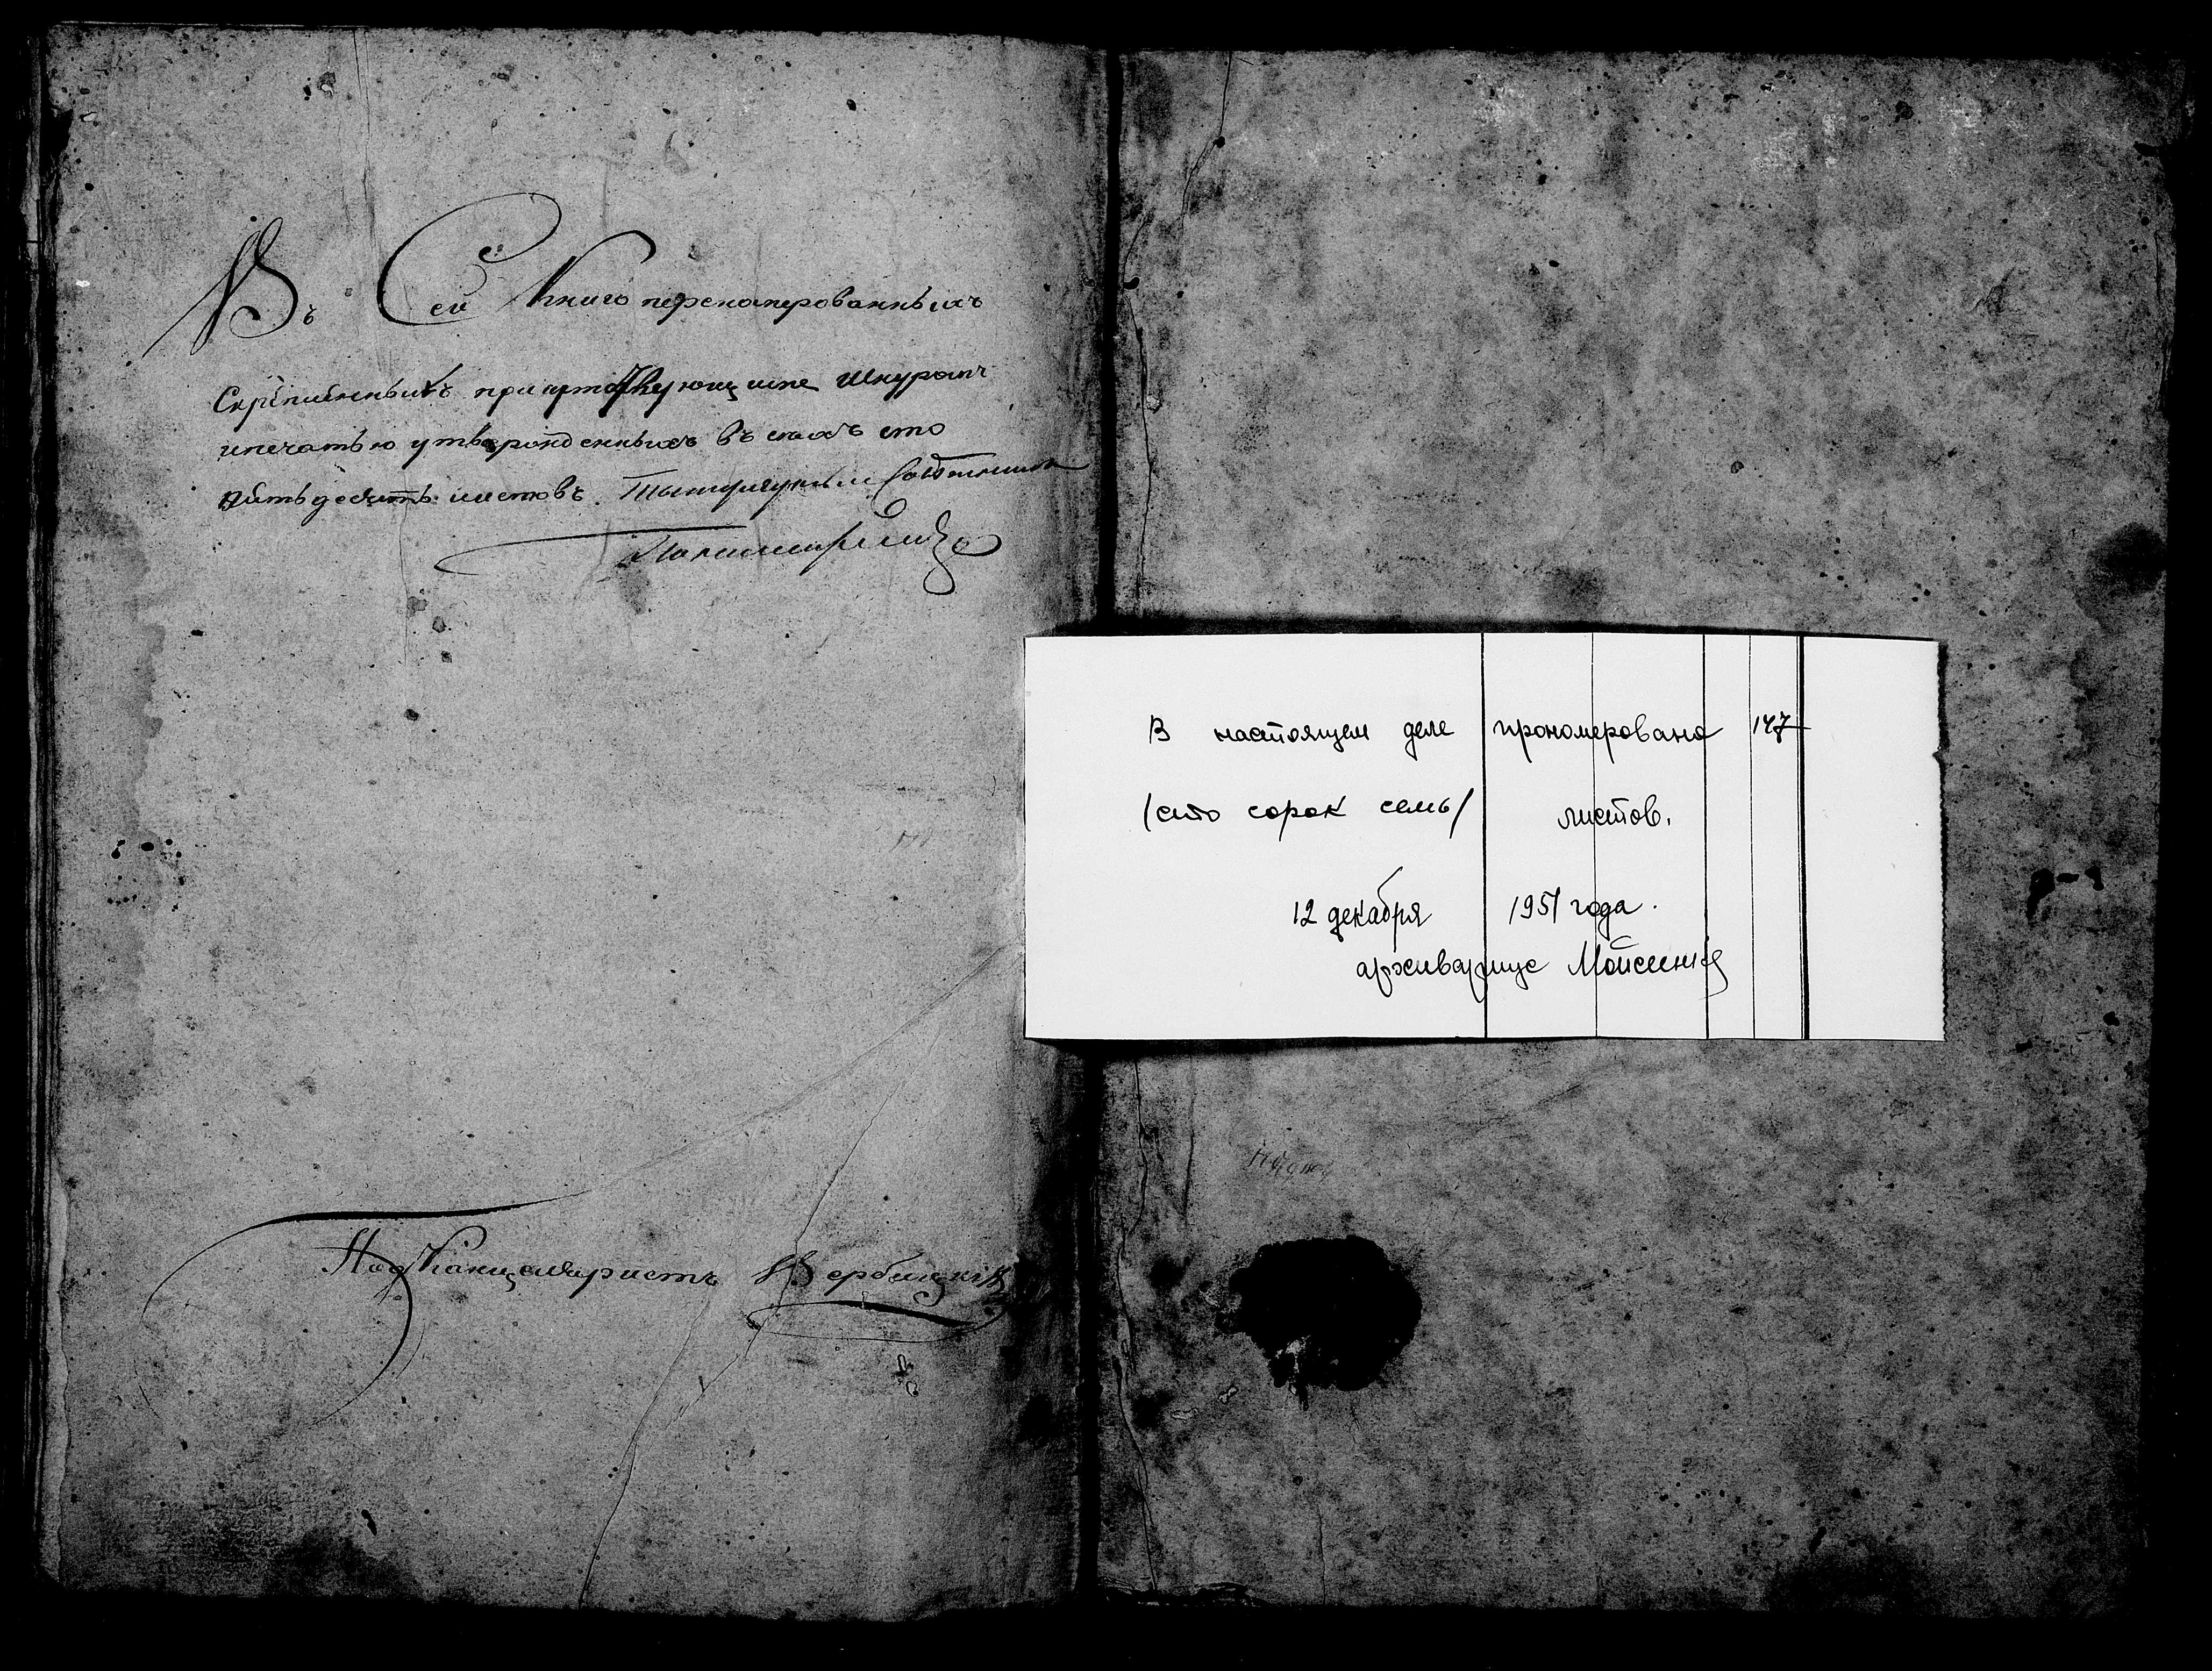 Въ Сей Книго перенамерованныхъ
Скрепленныхъ при Шнуромъ
ипечатью утвержденныхъ въ сто
пятьдесятъ листовъ. Титулярный Советникъ
ПодКанцеляристъ Вербицкій
В настоящем деле прономеровано 147
/сто сорок семь/ листов.
12 декабря 1951 года.
архивариус